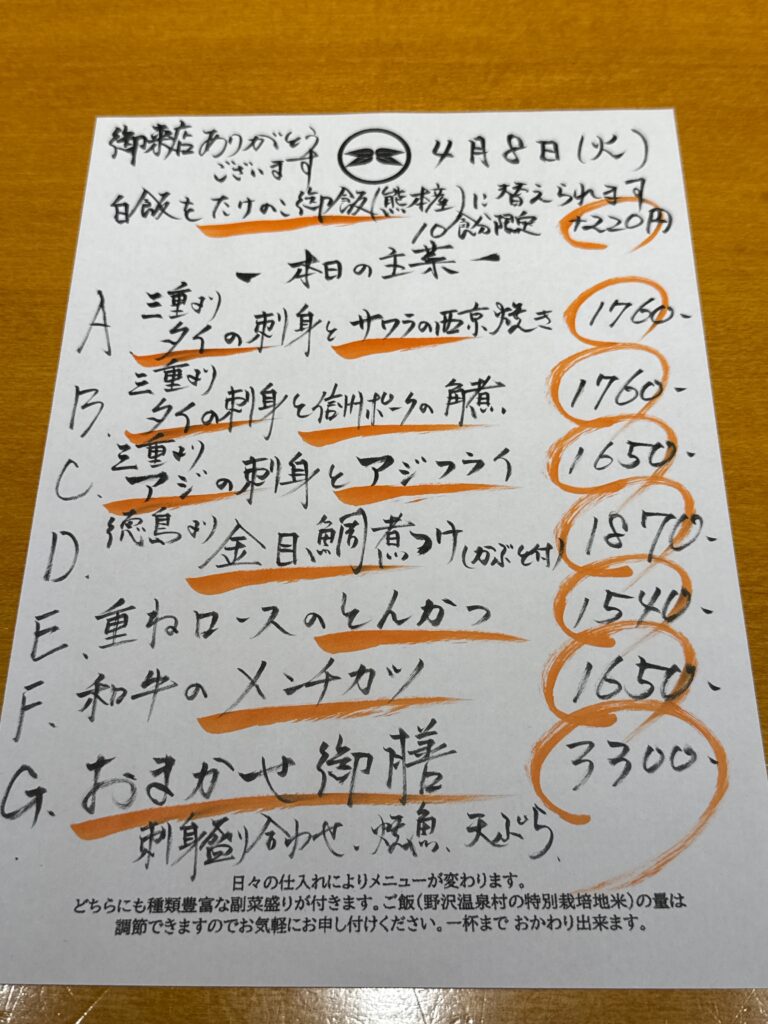 御来店ありがとう
ございます
4月8日(火)
白飯をたけのこ御飯(熊本産)に替えられます
10食分限定 +220円
ー 本日の主菜 ー
A 三重より
タイの刺身とサワラの西京焼き 1760-
B. 三重より
タイの刺身と信州ポークの角煮. 1760-
C. 三重より
アジの刺身とアジフライ 1650-
D. 徳島より
金目鯛煮つけ(かぶと付) 1870-
E. 重ねロースのとんかつ 1540-
F. 和牛のメンチカツ 1650-
G. おまかせ御膳 3300-
刺身盛り合わせ、焼魚、天ぷら、
日々の仕入れによりメニューが変わります。
どちらにも種類豊富な副菜盛りが付きます。ご飯(野沢温泉村の特別栽培地米)の量は
調節できますのでお気軽にお申し付けください。一杯まで おかわり出来ます。